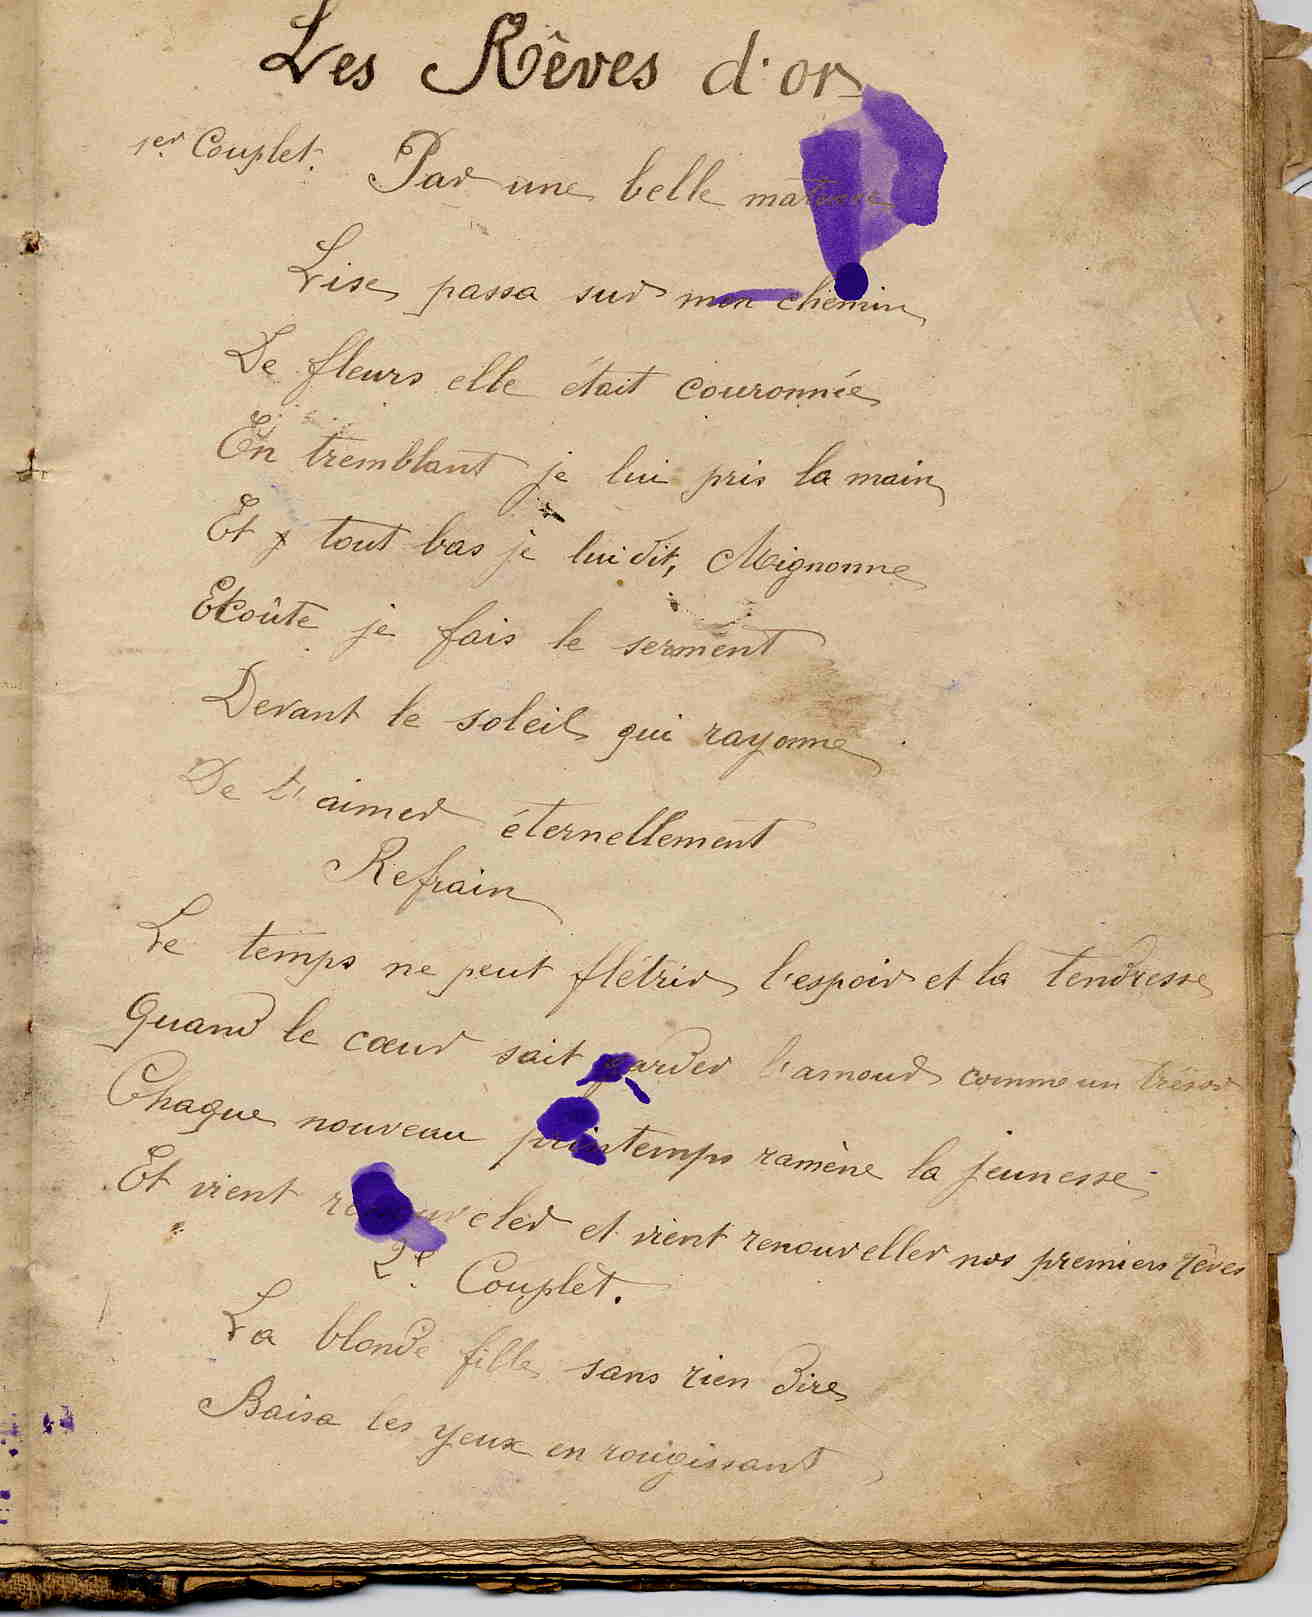 Les Rêves d'or
1er Couplet. Par une belle matinée
Lise passa sur mon chemin
De fleurs elle était couronnée
En tremblant je lui pris la main
Et tout bas je lui dit, Mignonne
Ecoûte je fais le serment
Devant le soleil qui rayonne
De t'aimer éternellement
Refrain
Le temps ne peut flétrir l'espoir et la tendresse
Quand le cœur sait garder l'amour comme un trésor
Chaque nouveau printemps ramène la jeunesse
Et vient renouveler et vient renouveller nos premiers rêves
2e. Couplet.
La blonde fille sans rien dire
Baisa les yeux en rougissant